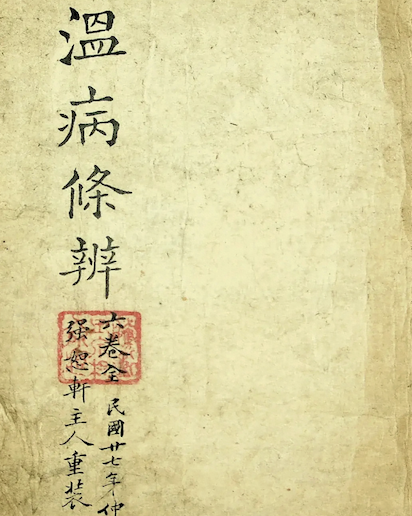 溫病條辨
六卷全 民國廿七年仲
强恕軒主人重裝